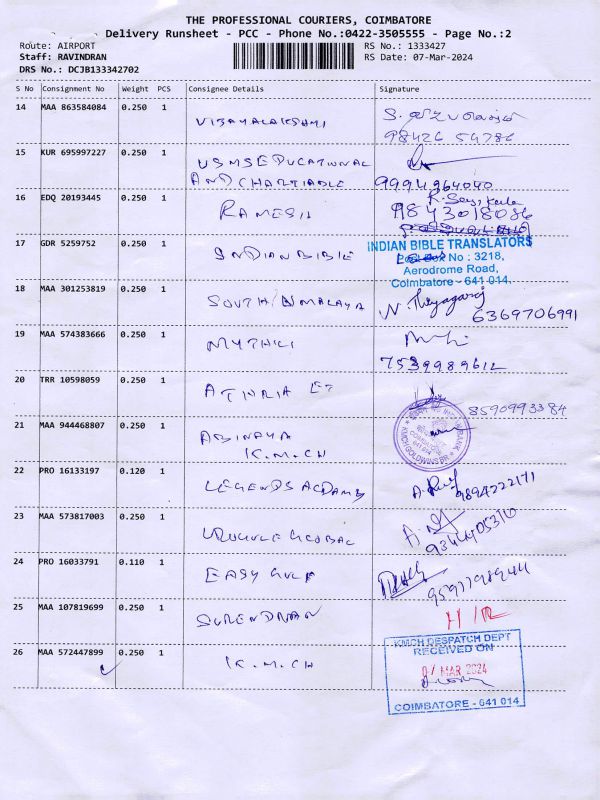 THE PROFESSIONAL COURIERS, COIMBATORE
Delivery Runsheet - PCC - Phone No.:0422-3505555 - Page No.:2
Route: AIRPORT
RS No.: 1333427
Staff: RAVINDRAN
RS Date: 07-Mar-2024
DRS No.: DCJB133342702
S No Consignment No Weight PCS Consignee Details Signature
14 MAA 863584084 0.250 1
VIJAYALAKSHMI
98426 54786
15 KUR 695997227 0.250 1
USMS EDUCATIONAL
AND CHARTIABLE 9994964040
16 EDQ 20193445 0.250 1
RAMESH 9843018086
17 GDR 5259752 0.250 1
INDIAN BIBLE
INDIAN BIBLE TRANSLATORS
Post Box No : 3218,
Aerodrome Road,
Coimbatore - 641 014.
18 MAA 301253819 0.250 1
SOUTH IN MALAYA
N. Thiyagaraj
6369706991
19 MAA 574383666 0.250 1
MYTHILI
7539989612
20 TRR 10598059 0.250 1
8590993384
21 MAA 944468807 0.250 1
ABINAYA
K.M.CH
22 PRO 16133197 0.120 1
LEGENDS ACDAMY
9894222171
23 MAA 573817003 0.250 1
9344405310
24 PRO 16033791 0.110 1
EASY GULF
25 MAA 107819699 0.250 1
SURENDRAN
H/R
26 MAA 572447899 0.250 1
K.M.CH
KMCH DESPATCH DEPT
RECEIVED ON
07 MAR 2024
COIMBATORE - 641 014